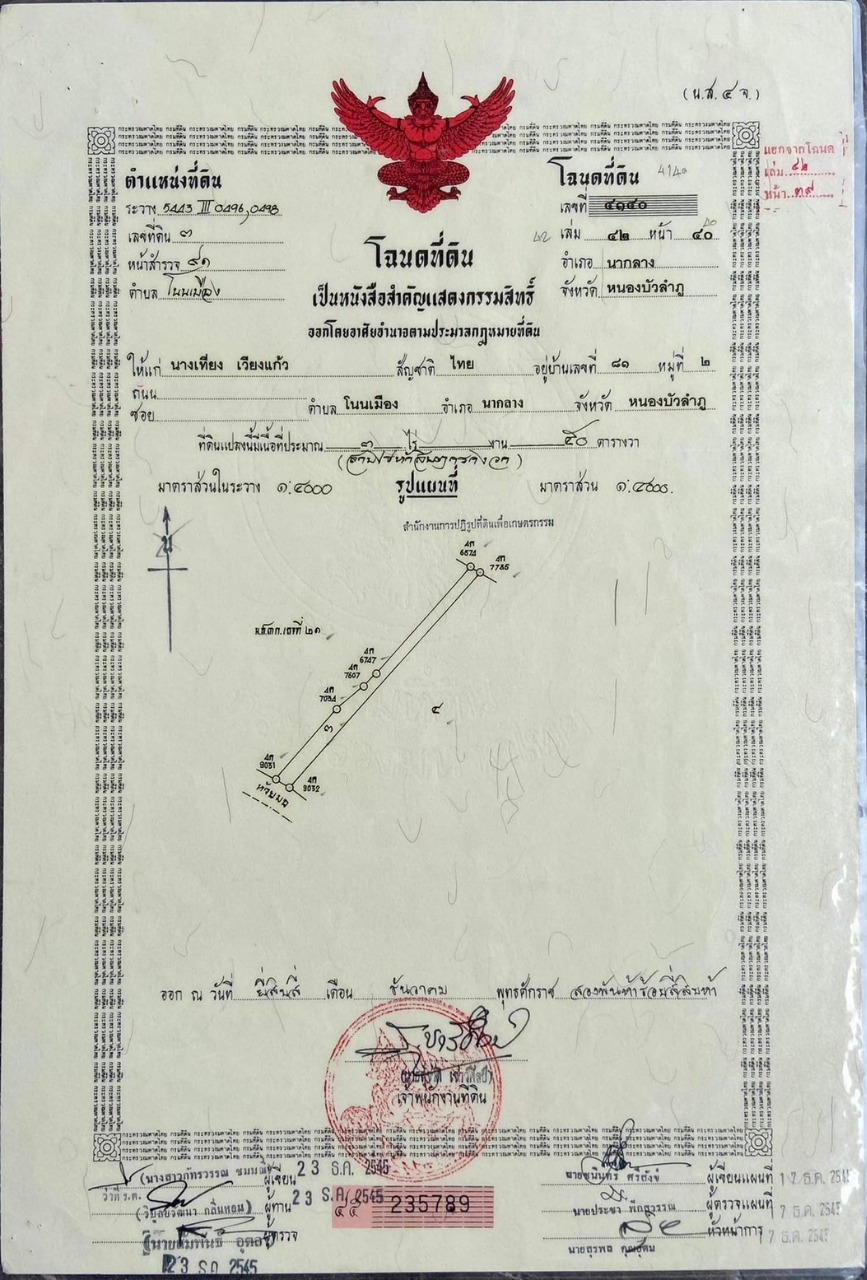 (น.ส. ๔ จ.)
ตำแหน่งที่ดิน
โฉนดที่ดิน
4140
แยกจากโฉนด
เล่ม ๔๒
หน้า ๓๙
ระวาง 5443 III 0496,0498
เลขที่ ๔๑๔๐
เลขที่ดิน ๓
เล่ม ๔๒ หน้า ๔๐
42
40
หน้าสำรวจ ๙๑
อำเภอ นากลาง
ตำบล โนนเมือง
จังหวัด หนองบัวลำภู
โฉนดที่ดิน
เป็นหนังสือสำคัญแสดงกรรมสิทธิ์
ออกโดยอาศัยอำนาจตามประมวลกฎหมายที่ดิน
ให้แก่ นางเทียง เวียงแก้ว สัญชาติ ไทย อยู่บ้านเลขที่ ๘๑ หมู่ที่ ๒
ถนน
ซอย ตำบล โนนเมือง อำเภอ นากลาง จังหวัด หนองบัวลำภู
ที่ดินแปลงนี้มีเนื้อที่ประมาณ ๓ ไร่ งาน ๕๐ ตารางวา
(สามไร่ห้าสิบตารางวา)
มาตราส่วนในระวาง ๑:๔๐๐๐ รูปแผนที่ มาตราส่วน ๑:๔๐๐๐
สำนักงานการปฏิรูปที่ดินเพื่อเกษตรกรรม
น
4ท 6574
4ท 7785
น.ส.๓ก.เลขที่ ๒๑
4ท 6747
4ท 7607
4ท 7034
๔
๓
4ท 9031
4ท 9032
ห้วยบง
ออก ณ วันที่ ยี่สิบสี่ เดือน ธันวาคม พุทธศักราช สองพันห้าร้อยสี่สิบห้า
เจ้าพนักงานที่ดิน
ผู้เขียน 23 ธ.ค. 2545
ว่าที่ ร.ต.
(วิบูลย์วัฒนา กลิ่นหอม) ผู้ทาน 23 ธ.ค. 2545
ผู้ตรวจ
23 ธ.ค. 2545
๔๕ 235789
ผู้เขียนแผนที่ 17 ธ.ค. 2545
นายประชา ผู้ตรวจแผนที่ 17 ธ.ค. 2545
หัวหน้าการ 17 ธ.ค. 2545